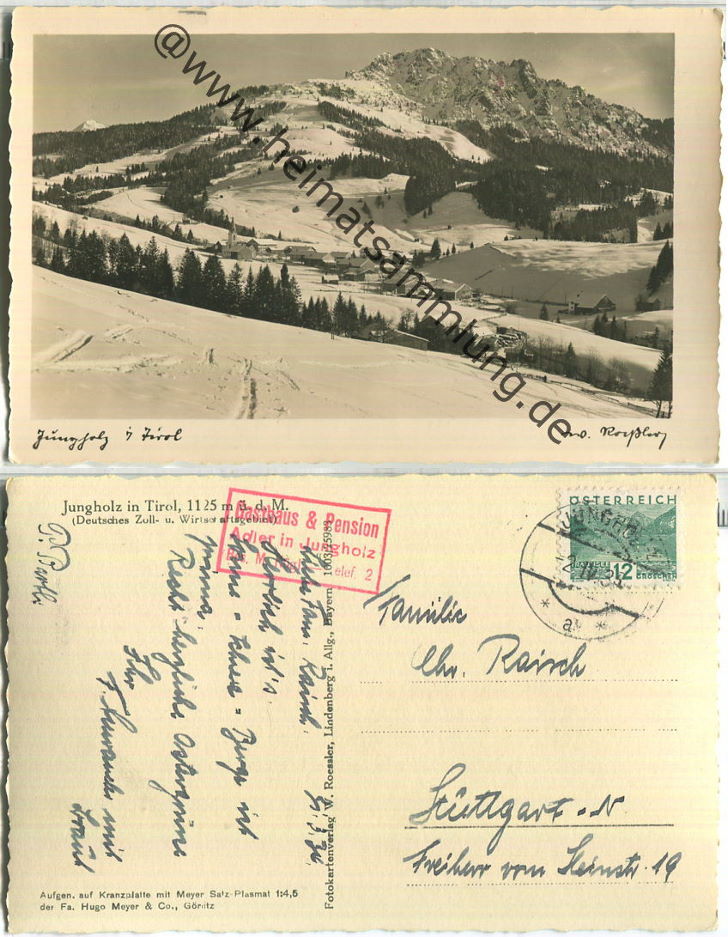 @www.heimatsammlung.de
Jungholz i Tirol
W. Roeßler
Jungholz in Tirol, 1125 m ü. d. M.
(Deutsches Zoll- u. Wirtschaftsgebiet)
Gasthaus & Pension
Adler in Jungholz
Telef. 2
ÖSTERREICH
12
GROSCHEN
JUNGHOLZ
a
Familie
Chr. Raisch
Stuttgart - N
Freiherr vom Steinstr. 19
Fam. Raisch
Herrlich ist's
Sonne - Schnee - Berge ist
prima.
Recht herzliche Ostergrüsse
Ihr
mit
Braut
Fotokartenverlag W. Roessler, Lindenberg i. Allg., Bayern
Aufgen. auf Kranzplatte mit Meyer Satz-Plasmat 1:4,5
der Fa. Hugo Meyer & Co., Görlitz